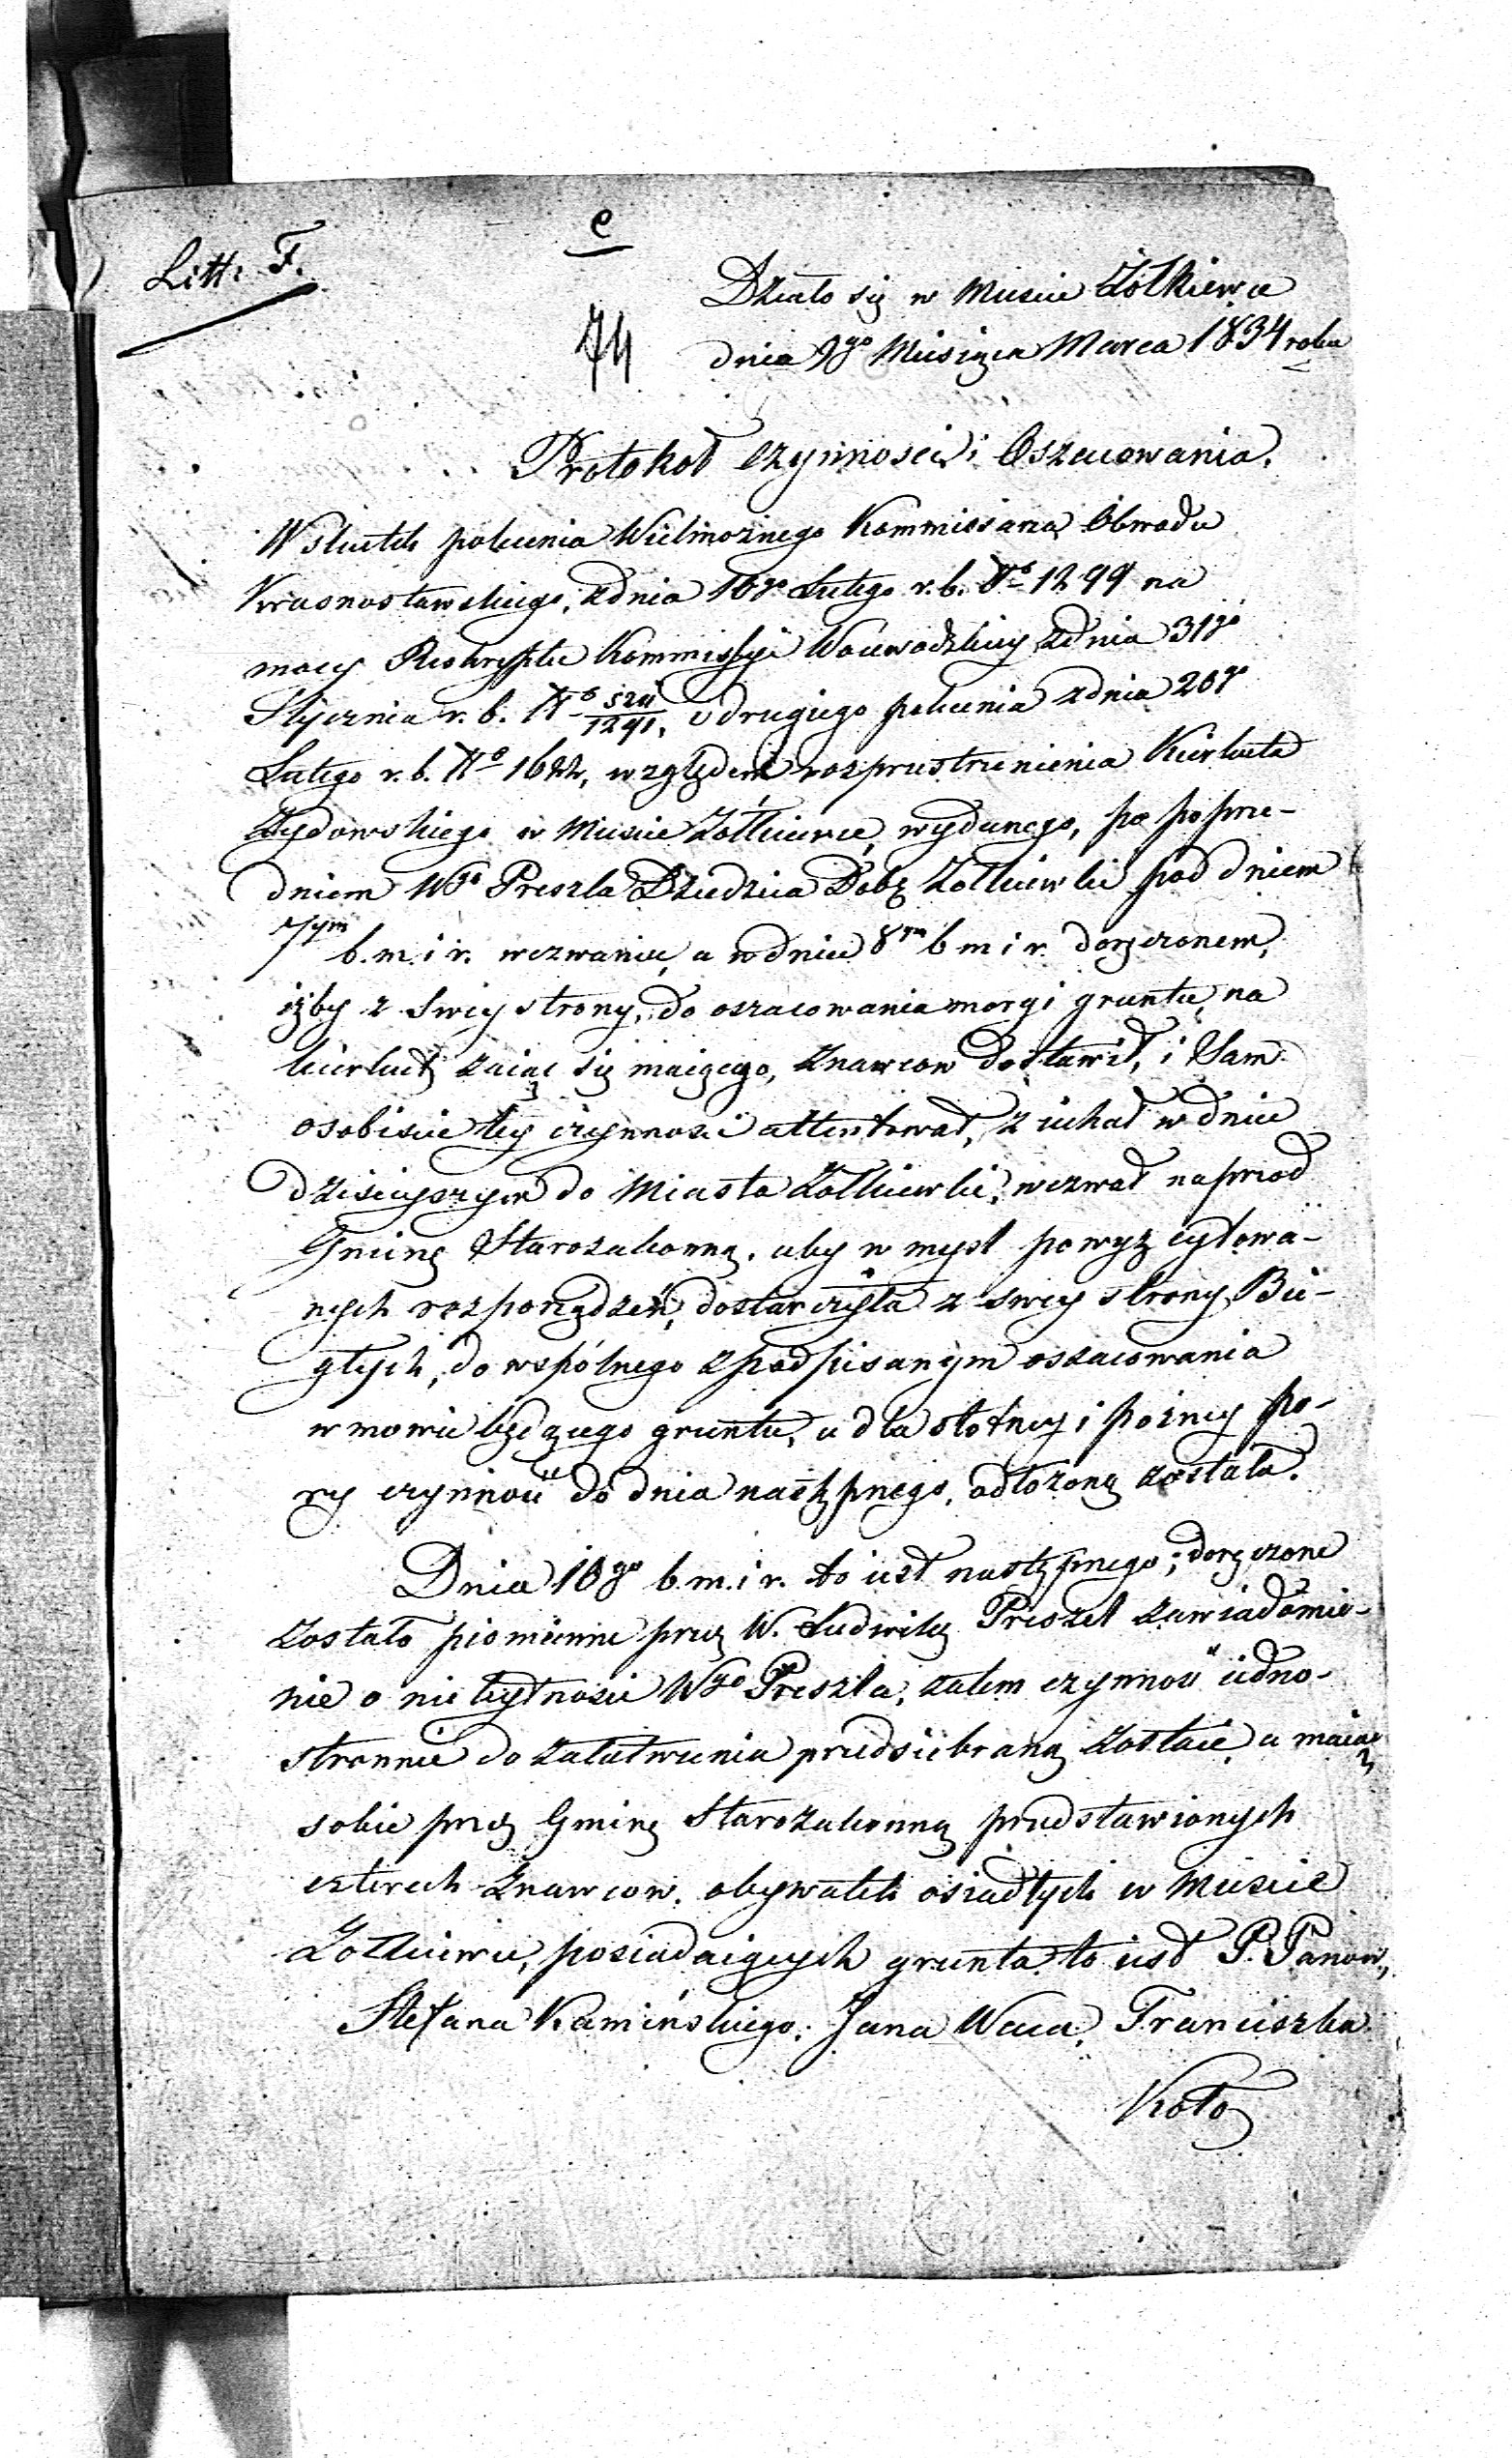 Litt: F.
e
74
Działo się w Mieście Żółkiewce
dnia 9go Miesiąca Marca 1834 roku
Protokół czynności i Oszacowania.
W skutek polecenia Wielmożnego Kommissarza Obwodu
Krasnostawskiego, z dnia 16go Lutego r. b. No 1299 na
mocy Reskryptu Kommissyi Woiewodzkiey z dnia 31go
Stycznia r. b. No 1291, i drugiego polecenia z dnia 20go
Lutego r. b. No 1622, względem rozprzestrzenienia Kierkuta
Żydowskiego w Mieście Żółkiewce, wydanego, po poprze-
dniem Wgo Preszla Dziedzica Dobr Żółkiewki pod dniem
7ym b. m. i r. wezwaniu, a w dniu 8ym b m i r. doręczonem,
iżby z swey strony, do oszacowania morgi gruntu, na
kierkut zaiąć się maiącego, Znawcow dostawił, i Sam
osobiście tey czynności attentował, ziechał w dniu
dzisieyszym do Miasta Żółkiewki, wezwał naprzod
Gminę Starozakonną, aby w myśl powyż cytowa-
nych rozporządzeń, dostarczyła z swey strony Bie-
głych, do wspólnego z podpisanym oszacowania
w mowie będącego gruntu, a dla słotney i pożney po-
ry czynność do dnia następnego, odłożoną została.
Dnia 10go b. m. i r. to iest następnego; doręczone
zostało pismienne przez W. Ludwikę Preszel zawiadomie-
nie o niebytności Wgo Preszla, zatem czynność iedno-
stronnie do załatwienia przedsiebraną zostaie, a maiąc
sobie przez Gminę Starozakonną przedstawionych
czterech Znawcow, obywateli osiadłych w Mieście
Żółkiewce, posiadaiących grunta to iest P. Panow,
Stefana Kamińskiego, Jana Waca, Franciszka
Koto